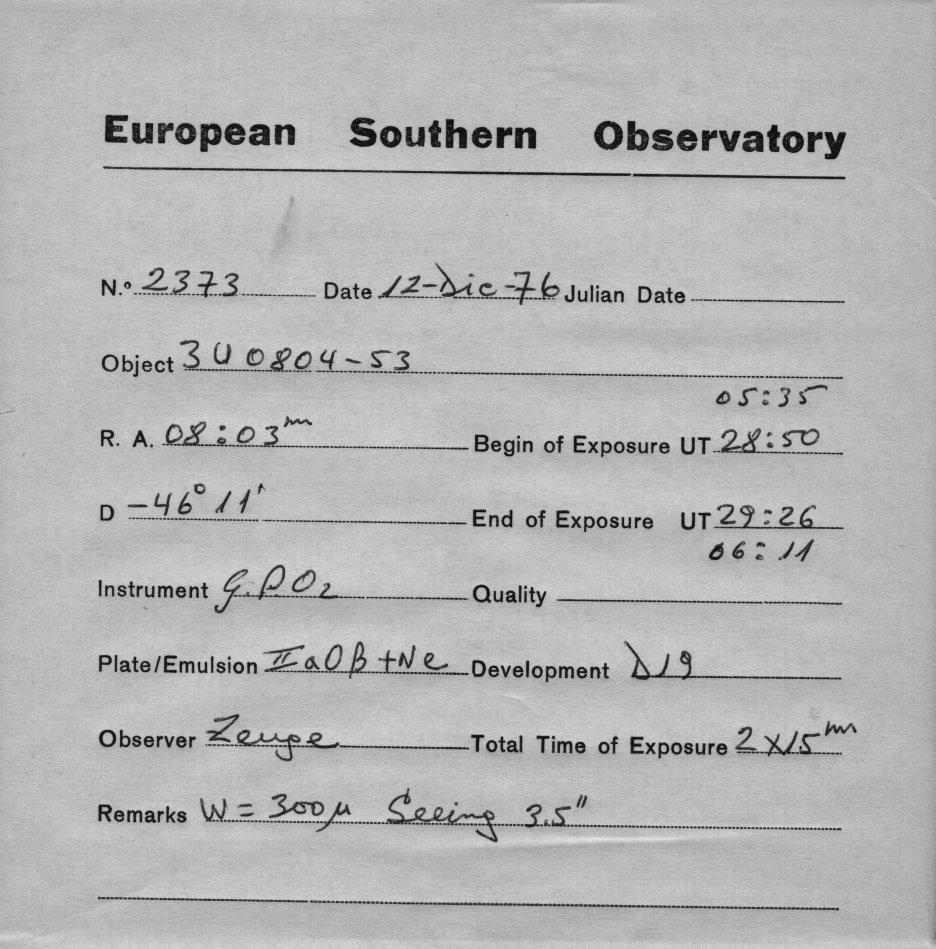 European Southern Observatory
N.º 2373 Date 12-Dic-76 Julian Date
Object 3U 0804-53
05:35
R. A. 08:03m Begin of Exposure UT 28:50
D -46° 11' End of Exposure UT 29:26
06:11
Instrument G.P.O2 Quality
Plate/Emulsion IIaOβ +Ne Development D19
Observer Zeuge Total Time of Exposure 2x15m
Remarks W = 300μ Seeing 3.5"